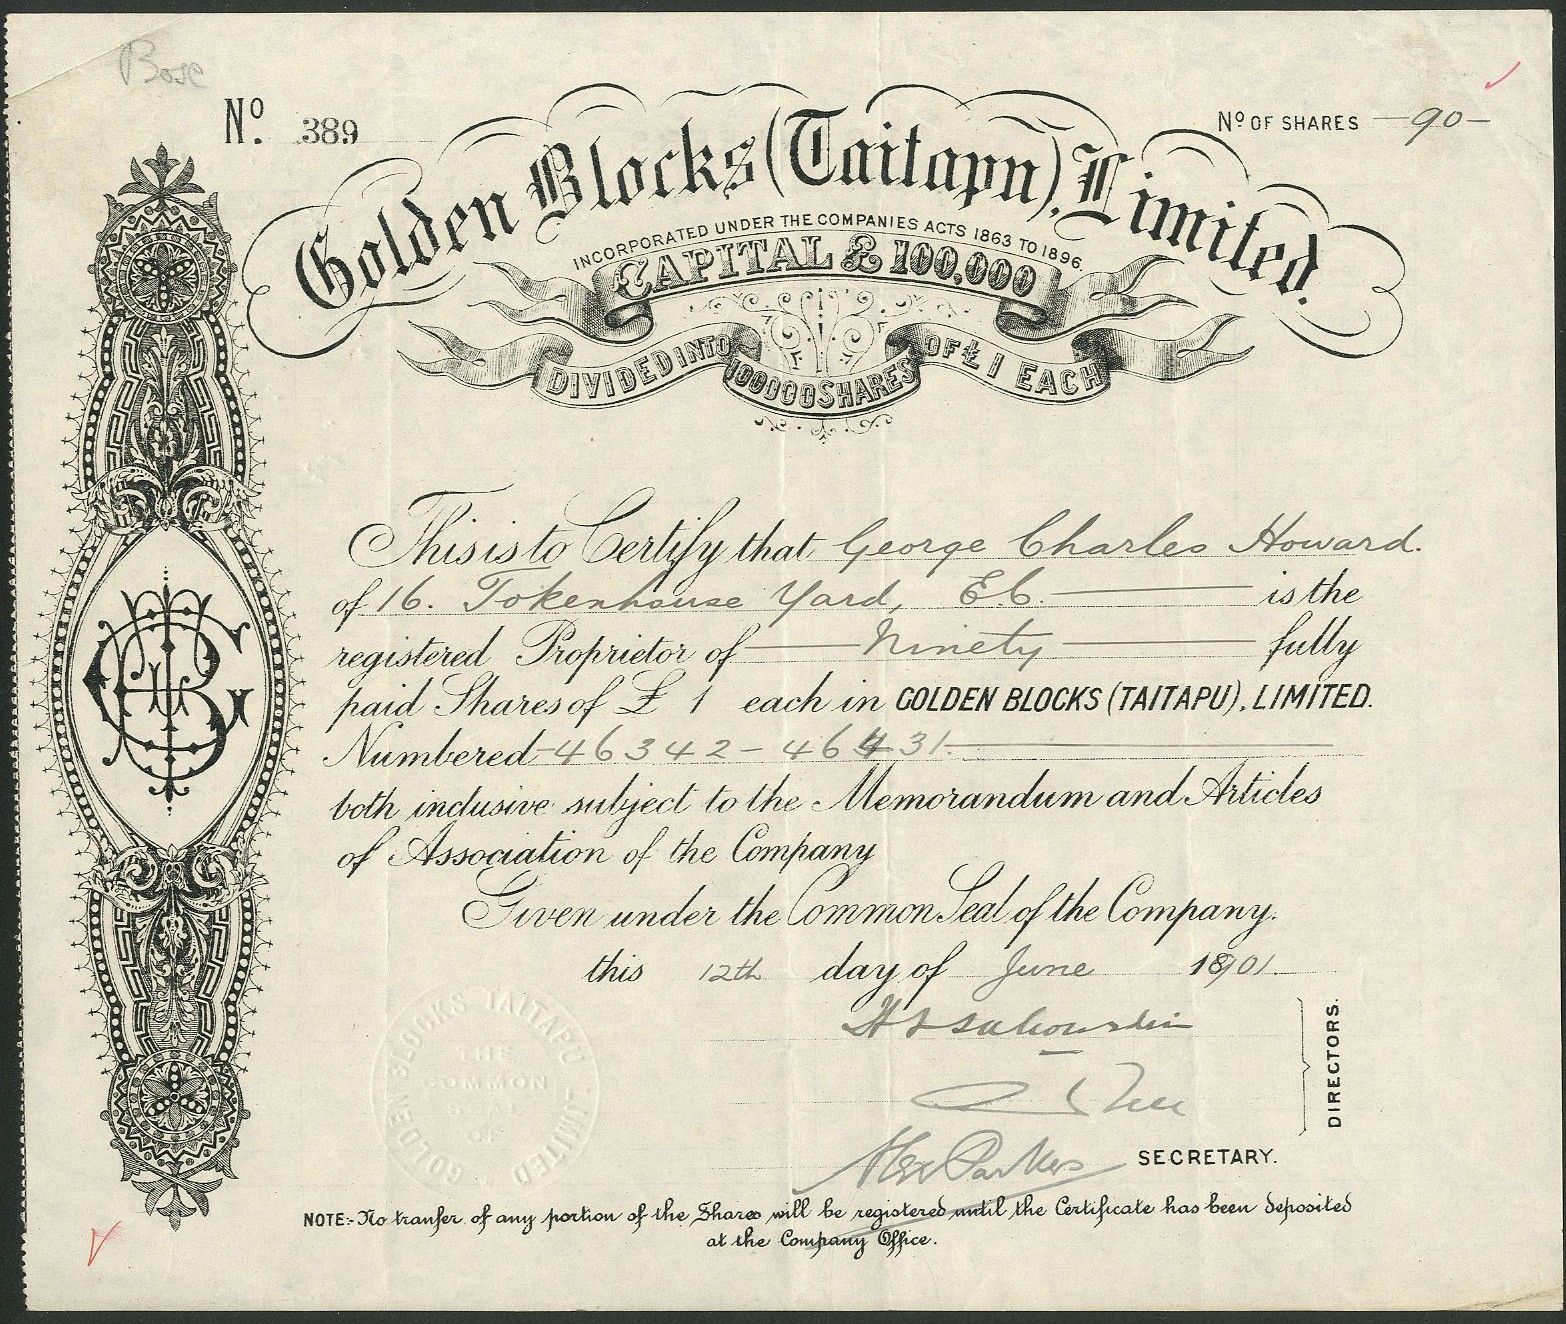 Bose
Nº. 389
Nº OF SHARES — 90 —
Golden Blocks (Taitapu), Limited.
INCORPORATED UNDER THE COMPANIES ACTS 1863 TO 1896.
CAPITAL £100,000
DIVIDED INTO 100000 SHARES OF £1 EACH
This is to Certify that George Charles Howard.
of 16. Tokenhouse Yard, E.C. is the
registered Proprietor of Ninety fully
paid Shares of £ 1 each in GOLDEN BLOCKS (TAITAPU), LIMITED.
Numbered 46342 - 46431.
both inclusive subject to the Memorandum and Articles
of Association of the Company
Given under the Common Seal of the Company.
this 12th day of June 1901.
DIRECTORS.
Alex Parkes SECRETARY.
GOLDEN BLOCKS TAITAPU LIMITED
THE
COMMON
SEAL
OF
NOTE:- No tranfer of any portion of the Shares will be registered until the Certificate has been deposited
at the Company Office.